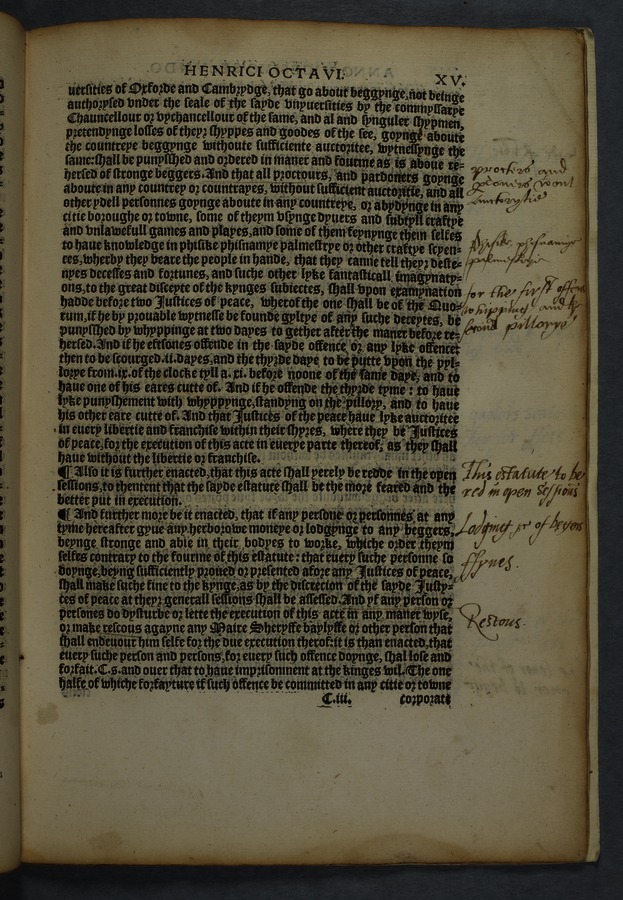 HENRICI OCTAVI. XV.
uersities of Oxforde and Cambrydge, that go about beggynge, not beinge
authorysed vnder the seale of the sayde vnyuersities by the commyssarye
Chauncellour or vychancellour of the same, and al and synguler shypmen,
pretendynge losses of theyr shyppes and goodes of the see, goynge aboute
the countreye beggynge withoute sufficiente auctoritee, wytnessynge the
same: shall be punysshed and ordered in maner and fourme as is aboue re-
hersed of stronge beggers. And that all proctours, and pardoners goynge
aboute in any countrey or countrayes, without sufficient auctoritie, and all
other ydell personnes goynge aboute in any countreye, or abydynge in any
citie boroughe or towne, some of theym vsynge dyuers and subtyll craftye
and vnlawefull games and playes, and some of them feynynge them selfes
to haue knowledge in phisike phisnamye palmestrye or other craftye scyen-
ces, wherby they beare the people in hande, that they canne tell theyr deste-
nyes decesses and fortunes, and suche other lyke fantasticall imagynaty-
ons, to the great disceyte of the kynges subiectes, shall vpon examynation
hadde before two Justices of peace, wherof the one shall be of the Quo-
rum, if he by prouable wytnesse be founde gyltye of any suche deceytes, be
punysshed by whyppinge at two dayes to gether after the maner before re-
hersed. And if he eftsones offende in the sayde offence or any lyke offence:
then to be scourged .ii. dayes, and the thyrde daye to be putte vpon the pyl-
lorye from .ix. of the clocke tyll a .xi. before noone of the same daye, and to
haue one of his eares cutte of. And if he offende the thyrde tyme: to haue
lyke punyshement with whypppynge, standyng on the pillory, and to haue
his other eare cutte of. And that Justices of the peace haue lyke auctoritee
in euery libertie and franchise within their shyres, where they be Justices
of peace, for the execution of this acte in euerye parte therof, as they shall
haue without the libertie or franchise.
¶ Also it is further enacted, that this acte shall yerely be redde in the open
sessions, to thentent that the sayde estature shall be the more feared and the
better put in execution.
¶ And further more be it enacted, that if any persone or personnes at any
tyme hereafter gyue any herborowe moneye or lodgynge to any beggers,
beynge stronge and able in their bodyes to worke, whiche order theym
selfes contrary to the fourme of this estature: that euery suche personne so
doynge, beyng sufficiently proued or presented afore any Justices of peace,
shall make suche fine to the kynge, as by the discretion of the sayde Justy-
ces of peace at theyr generall sessions shall be assessed. And yf any person or
persones do dysturbe or lette the execution of this acte in any maner wyse,
or make rescous agayne any Maire Sheryffe baylyffe or other person that
shall endeuour him selfe for the due execution therof: it is than enacted, that
euery suche person and persons, for euery such offence doynge, shal lose and
forfait .C.s. and ouer that to haue imprisonment at the kinges wil. The one
halfe of whiche forfayture if such offence be committed in any citie or towne
C.iii. corporate
procters and
wont
Auctorytie
phisnamye
palmestrie
for the first offence
whipping and
second pillorye
This estatute to be
red in open sessions
Lodging
ffynes.
Rescous.